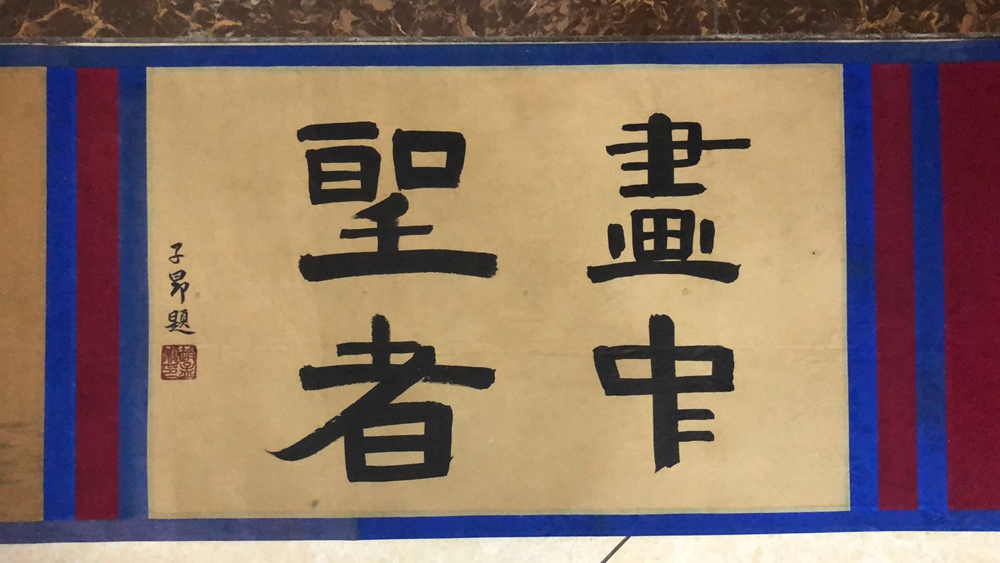 畫中
聖者
子昂題